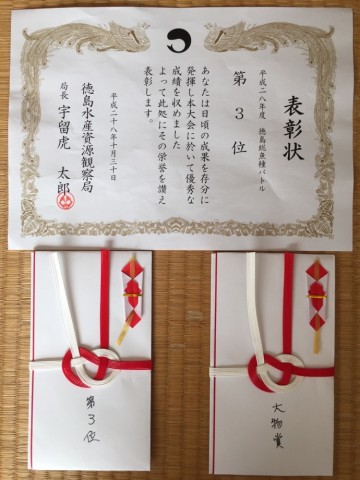 表彰状
平成二八年度 徳島総魚種バトル
第3位
あなたは日頃の成果を存分に
発揮し本大会に於いて優秀な
成績を収めました
よって此処にその栄誉を讃え
表彰します。
平成二十八年十月三十日
徳島水産資源観察局
局長 宇留虎 太郎
第3位
大物賞